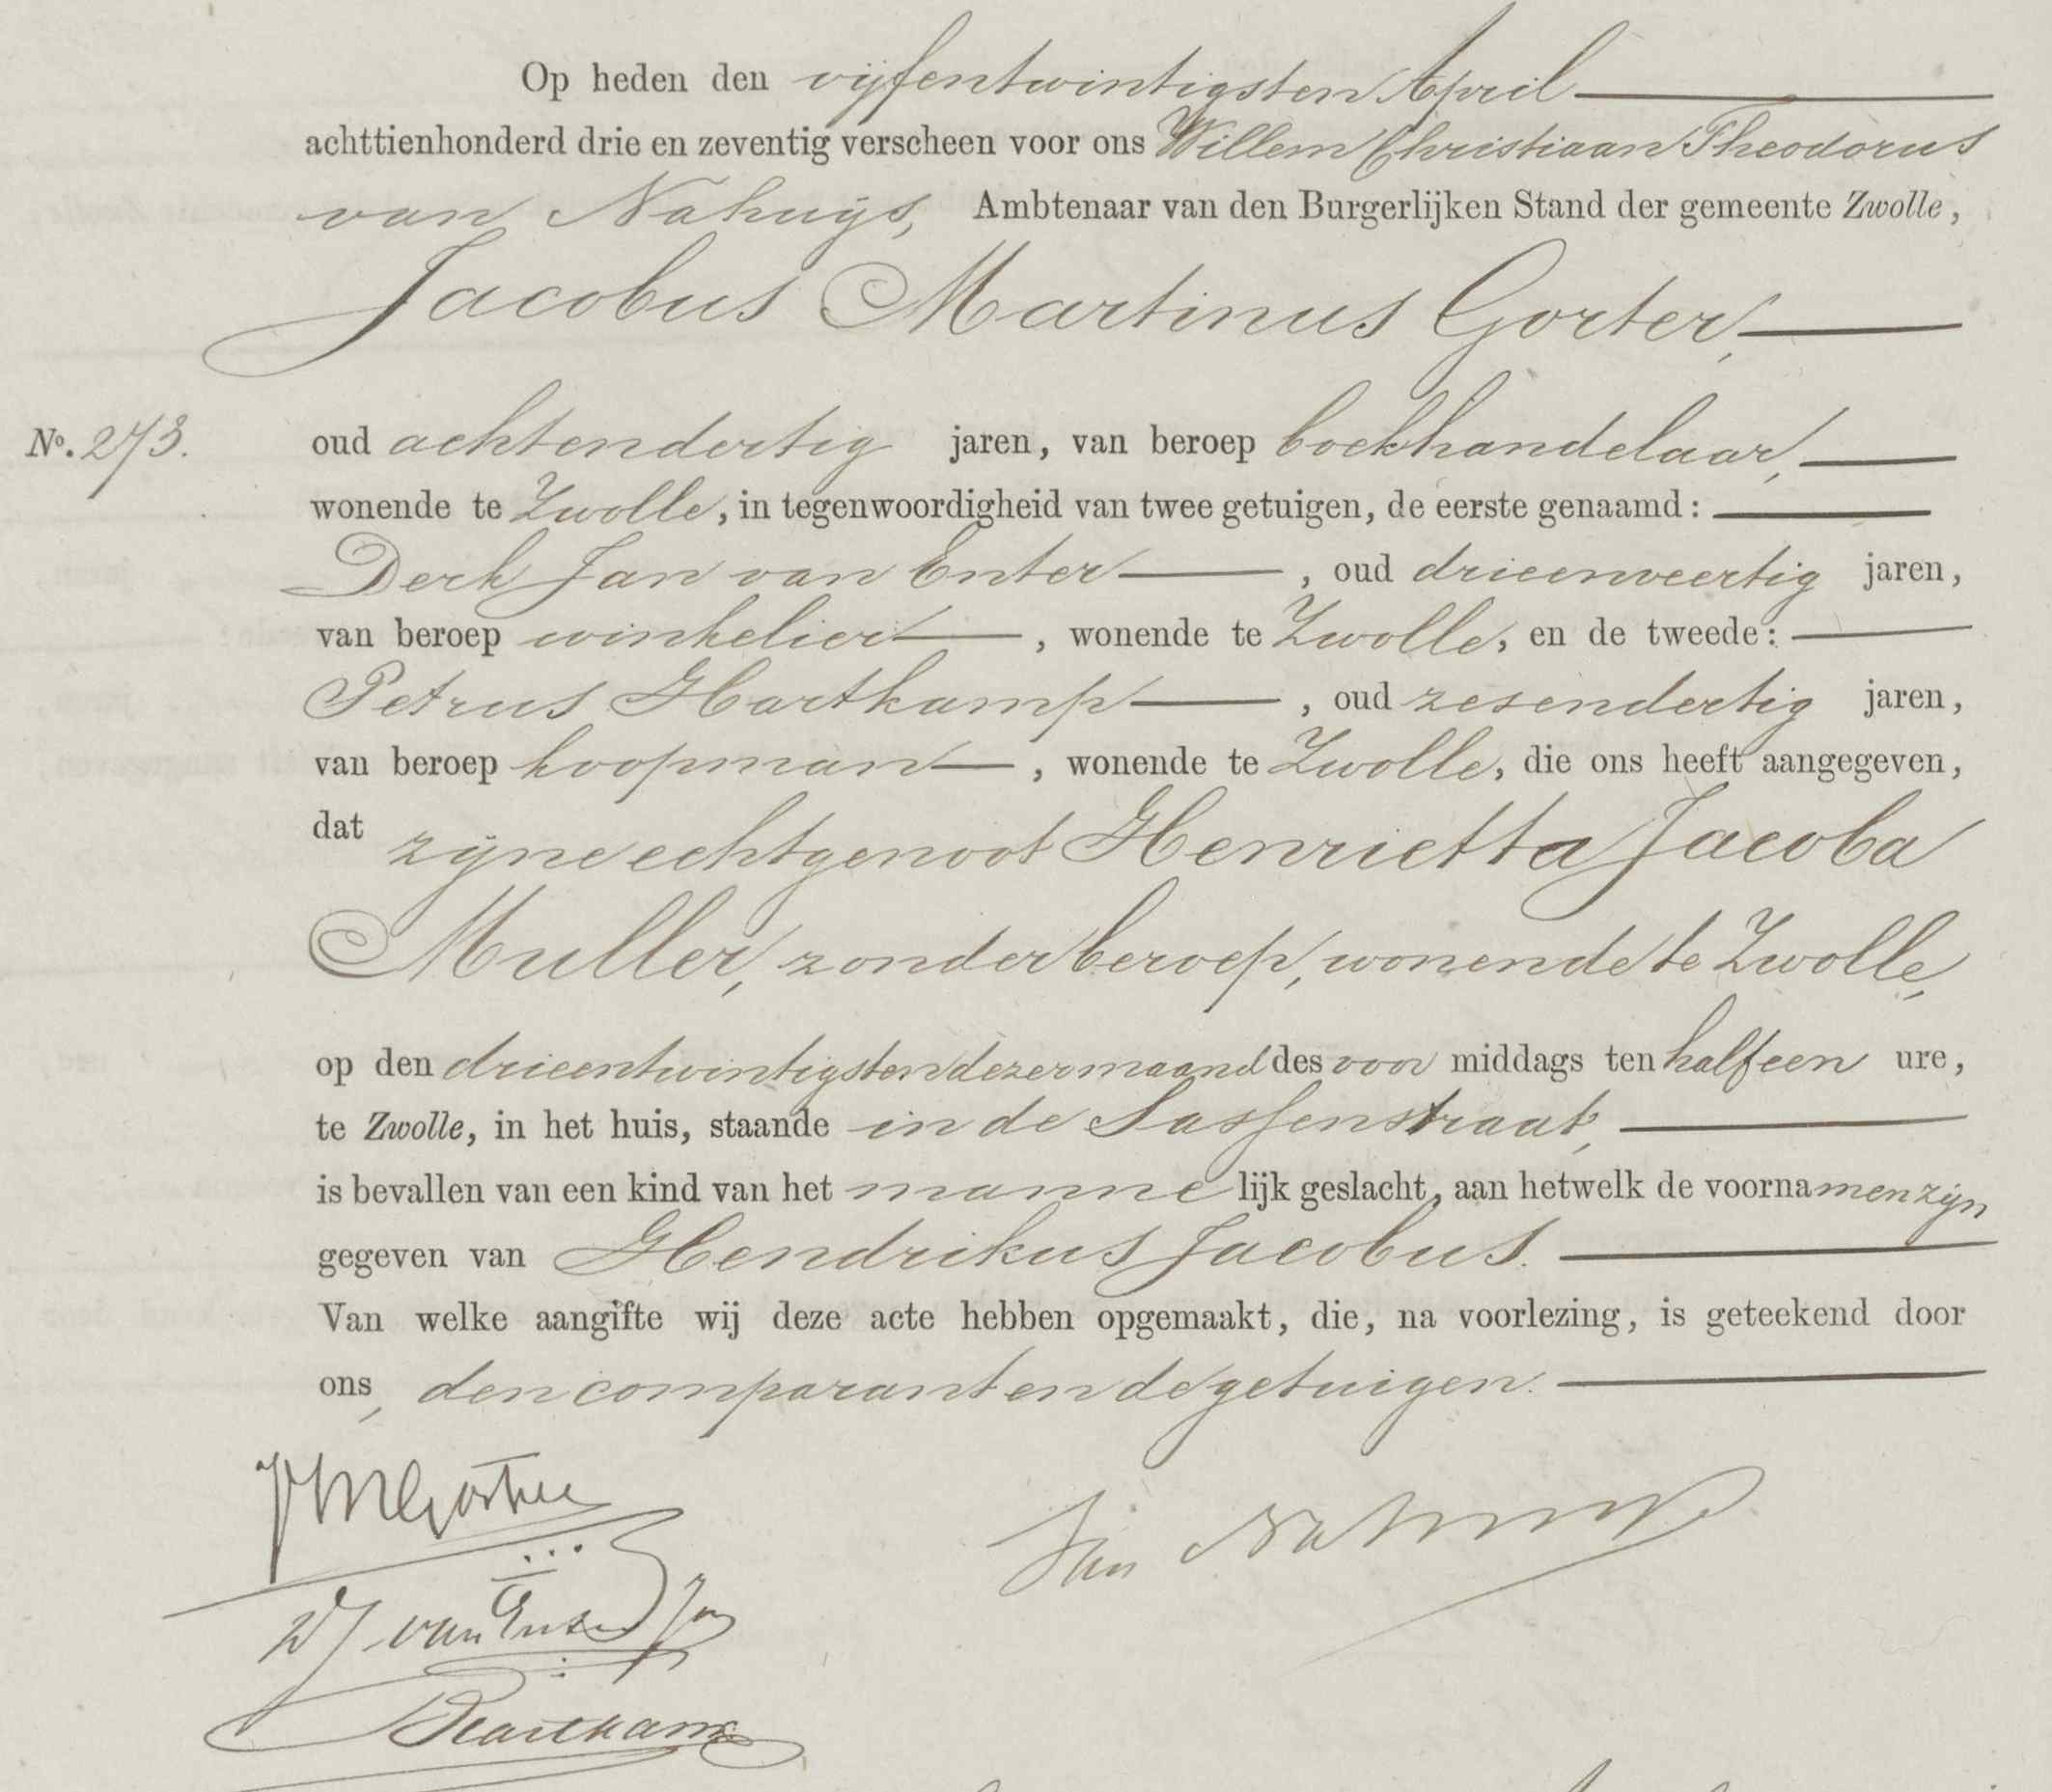 Op heden den vijfentwintigsten April
achttienhonderd drie en zeventig verscheen voor ons Willem Christiaan Theodorus
van Nahuys, Ambtenaar van den Burgerlijken Stand der gemeente Zwolle,
Jacobus Martinus Gorter,
No. 273.
oud achtendertig jaren, van beroep boekhandelaar,
wonende te Zwolle, in tegenwoordigheid van twee getuigen, de eerste genaamd:
Derk Jan van Enter, oud drieenveertig jaren,
van beroep winkelier, wonende te Zwolle, en de tweede:
Petrus Hartkamp, oud zesendertig jaren,
van beroep koopman, wonende te Zwolle, die ons heeft aangegeven,
dat zijne echtgenoot Henrietta Jacoba
Muller, zonder beroep, wonende te Zwolle,
op den drieentwintigsten dezer maand des voor middags ten half een ure,
te Zwolle, in het huis, staande in de Sassenstraat,
is bevallen van een kind van het mannelijk geslacht, aan hetwelk de voornamen zijn
gegeven van Hendrikus Jacobus.
Van welke aangifte wij deze acte hebben opgemaakt, die, na voorlezing, is geteekend door
ons, den comparant en de getuigen.
JMGorter
Van Nahuys
DJ van Enter Jzn
PHartkamp